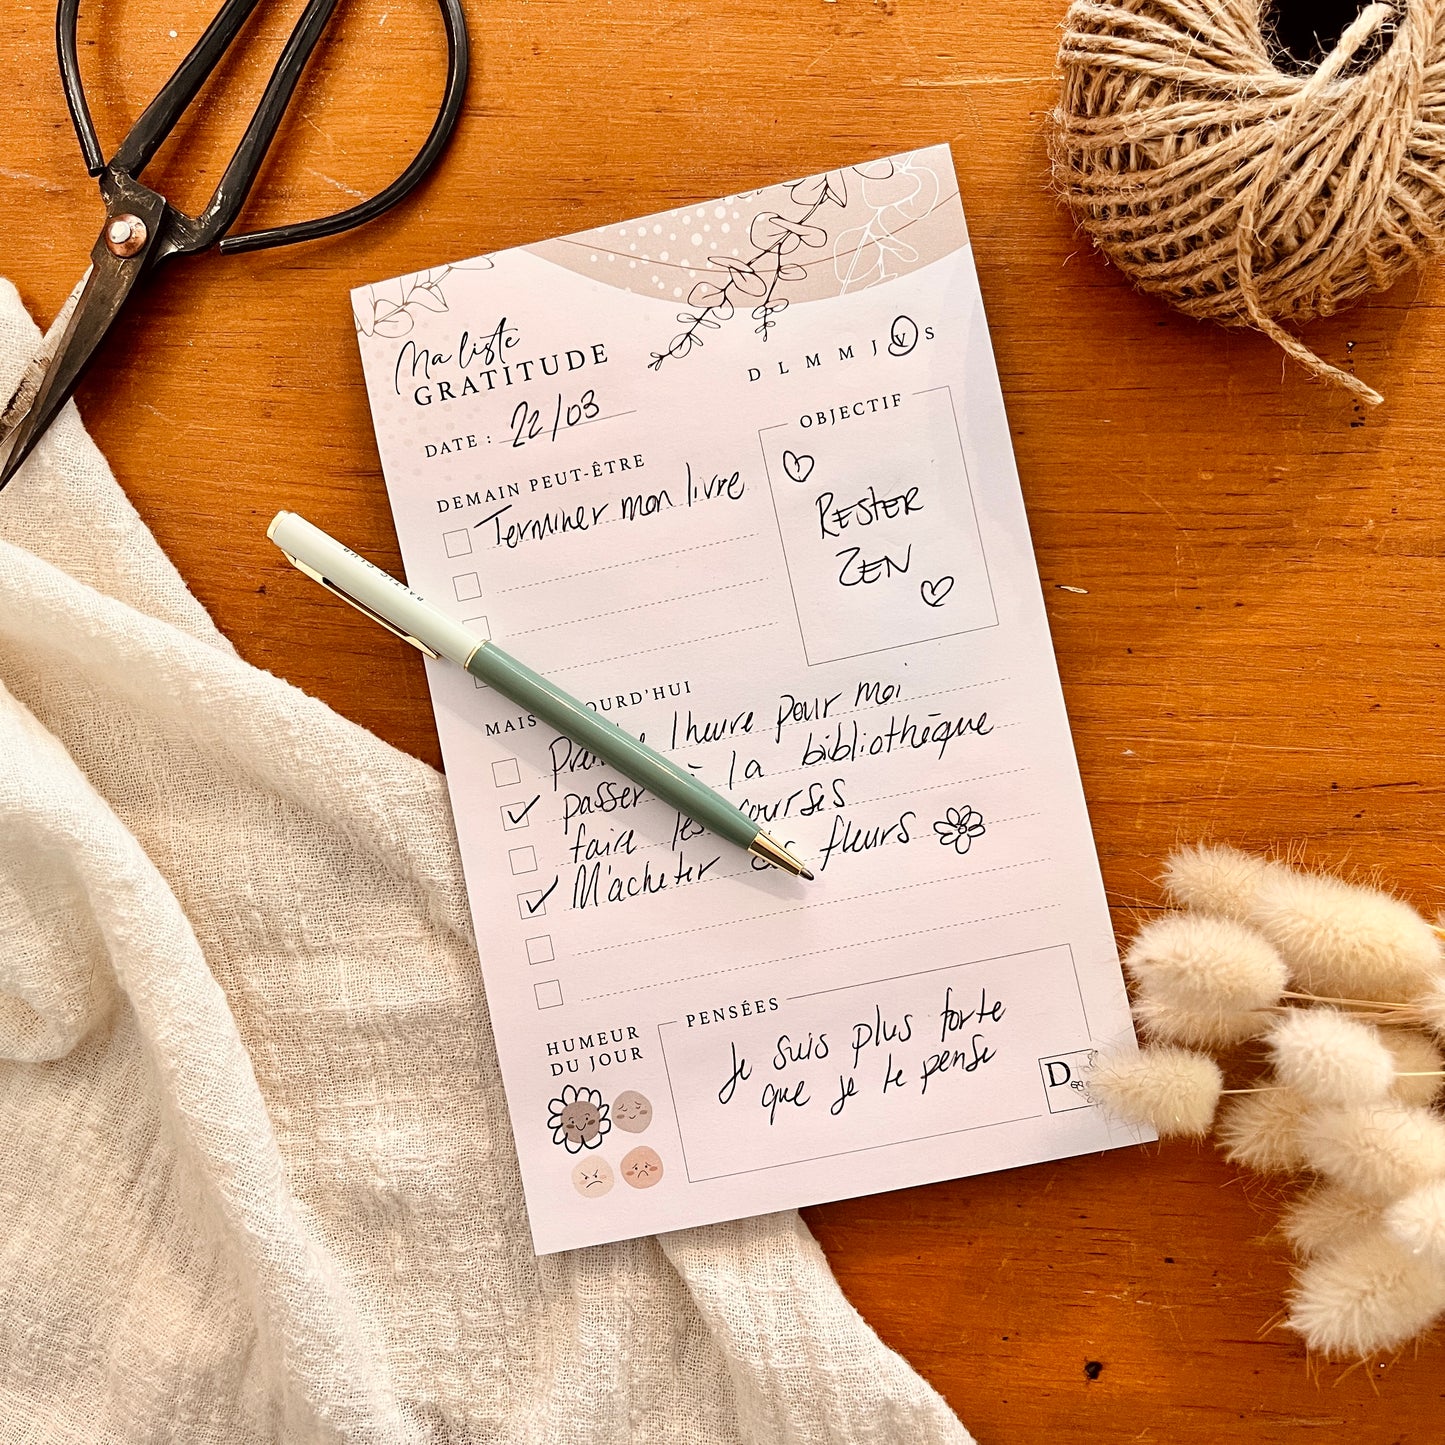 Ma liste
GRATITUDE
D L M M J V S
DATE : 22/03
DEMAIN PEUT-ÊTRE
Terminer mon livre
OBJECTIF
RESTER
ZEN
MAIS OURD'HUI
1heure pour moi
passer à la bibliothèque
faire les courses
M'acheter des fleurs
HUMEUR
DU JOUR
PENSÉES
Je suis plus forte
que je le pense
D